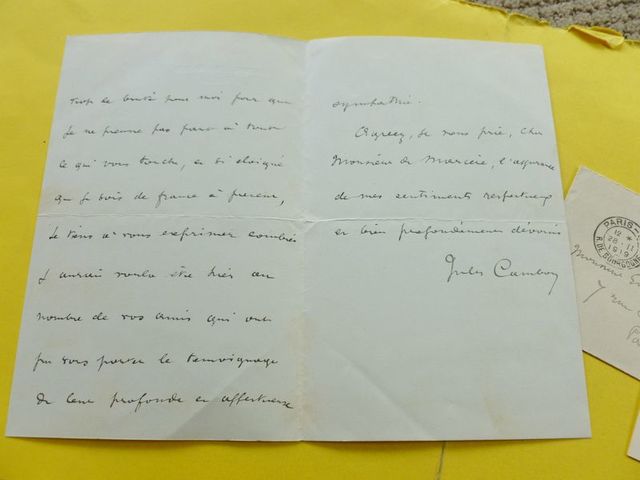 trop de bonté pour moi pour que
je ne prenne pas part à tout
ce qui vous touche, et si éloigné
que je sois de france à
je tiens à vous exprimer combien
j'aurais voulu être hier au
nombre de vos amis qui ont
pu vous porter le temoignage
de leur profonde et affectueuse
sympathie.
Agréez, je vous prie, cher
Monsieur de Marcère, l'assurance
de mes sentiments respectueux
et bien profondément dévoués
Jules Cambon
PARIS
12 *
28 - 11
1919
R. DE BOURGOGNE
Monsieur
7 rue